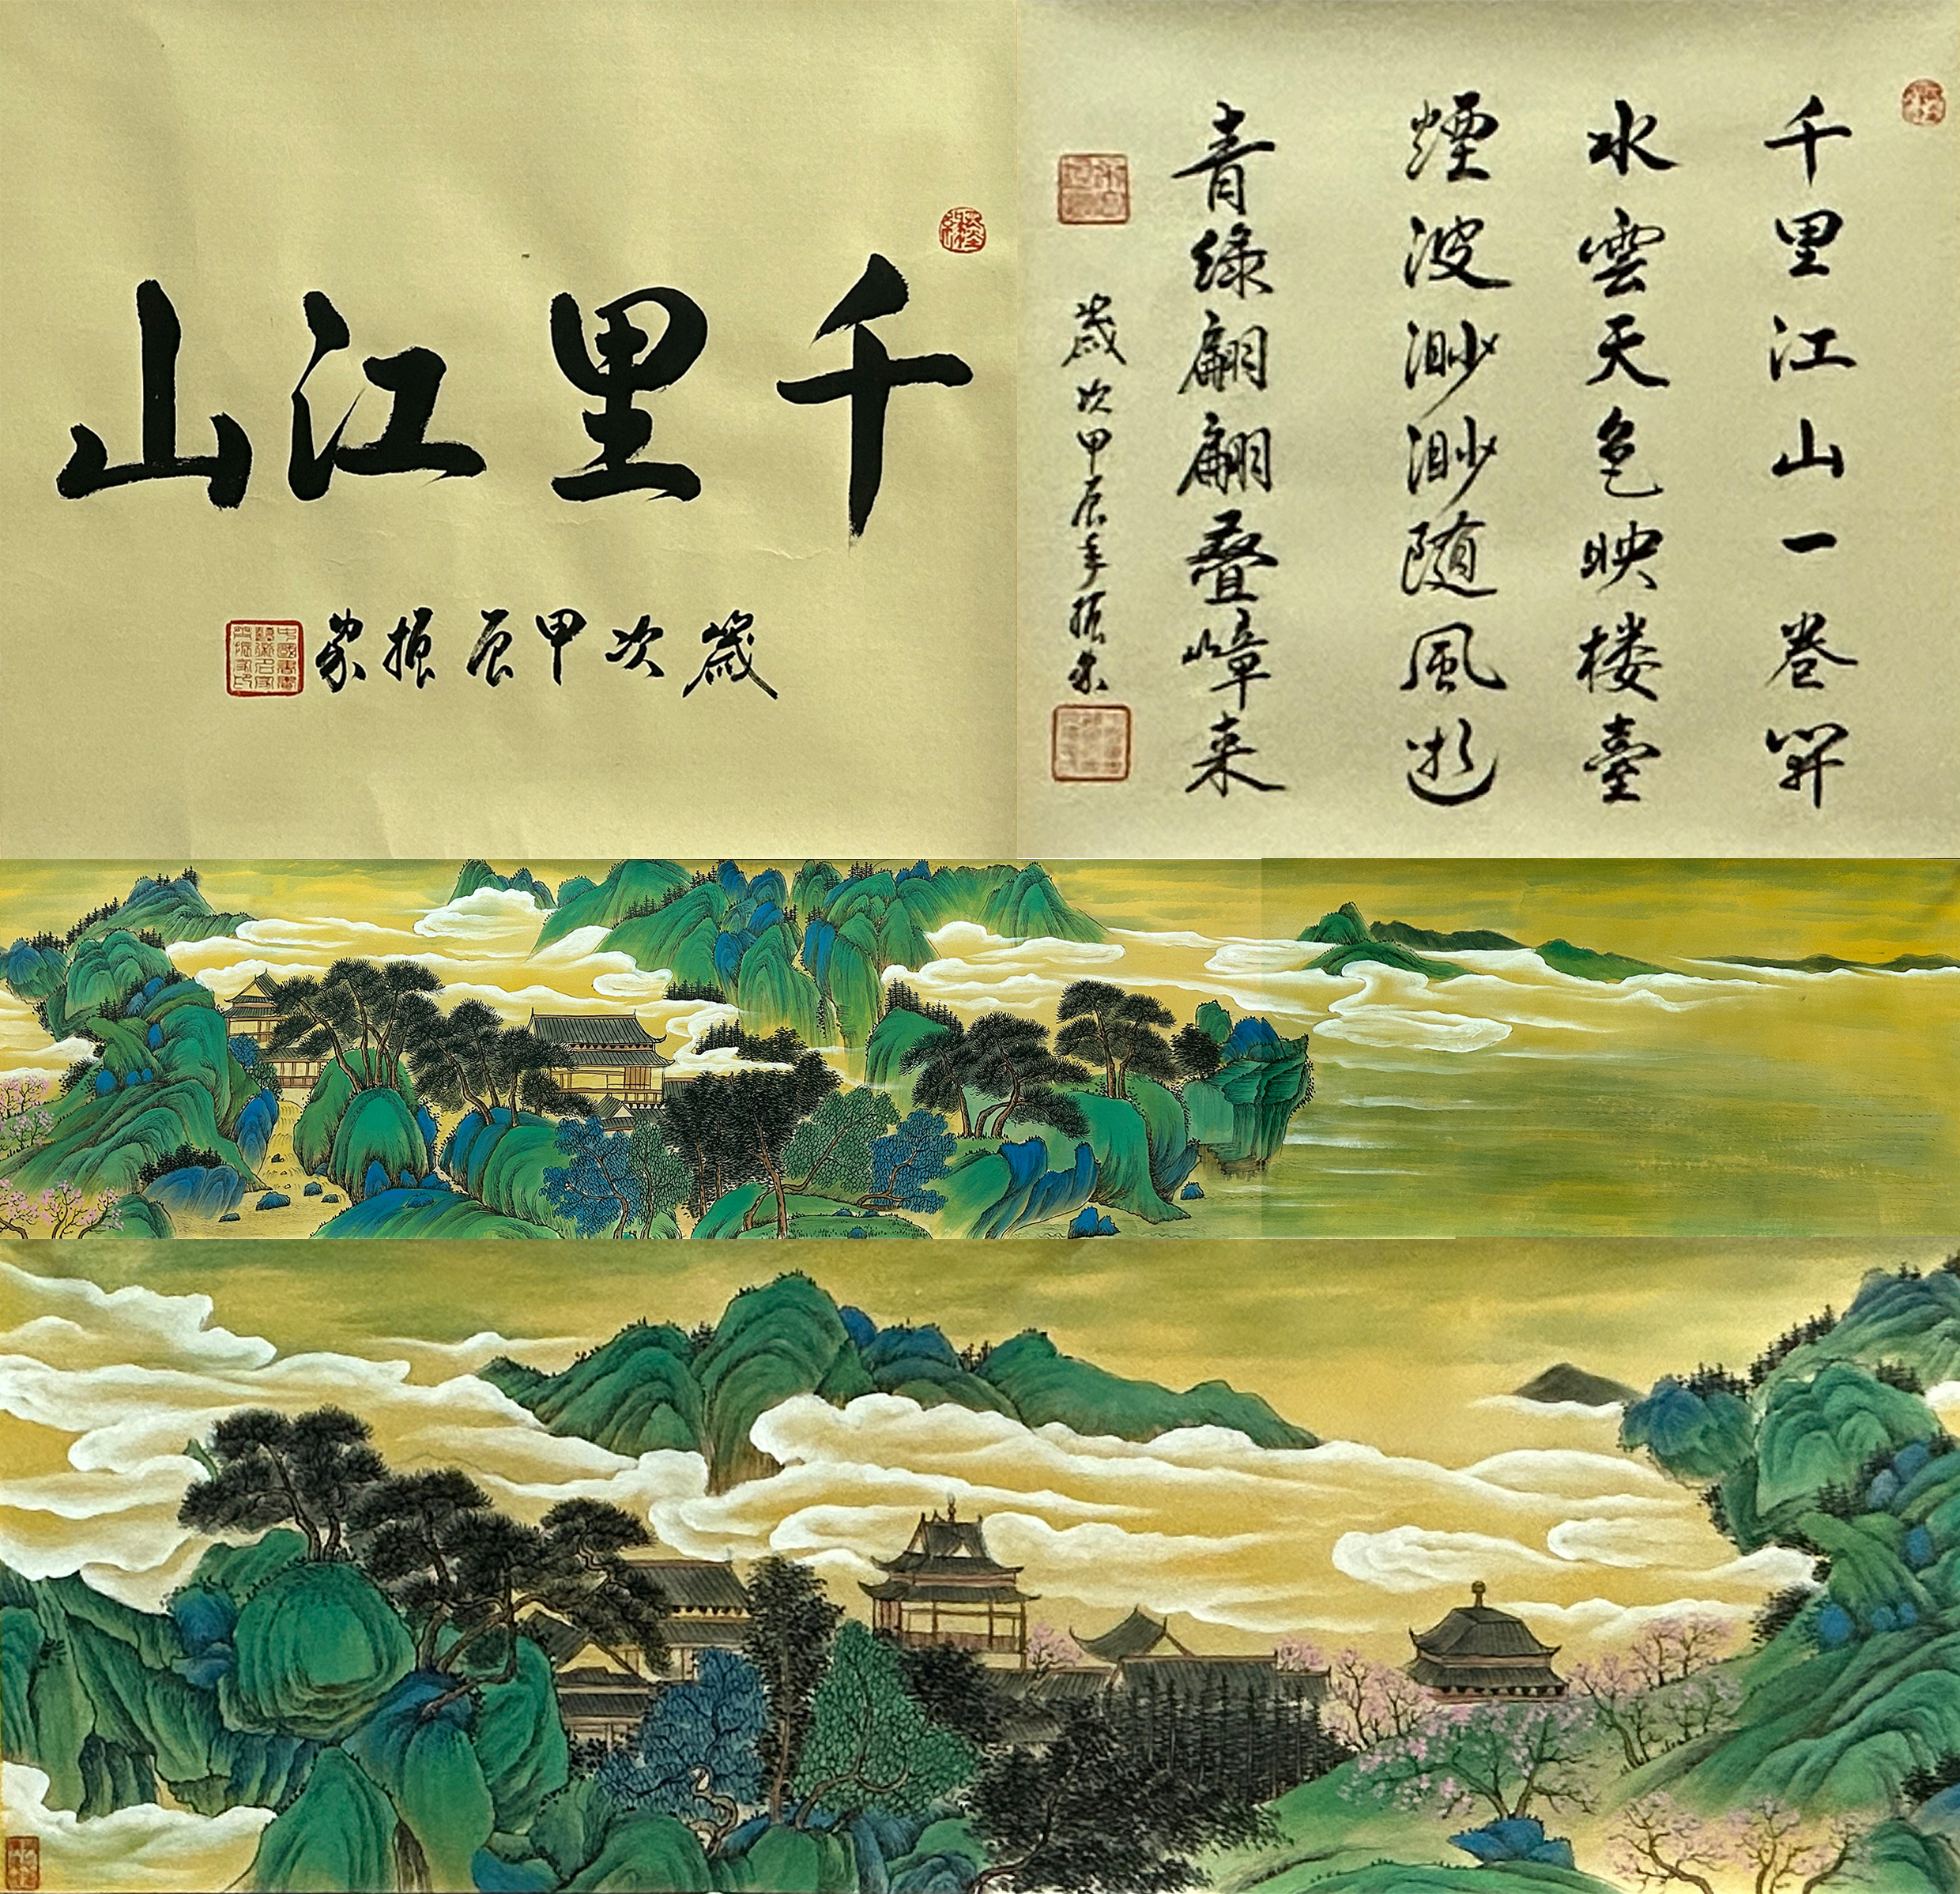 千里江山
歲次甲辰振家
千里江山一卷開
水雲天色映楼臺
煙波渺渺随風逝
青綠翩翩叠嶂来
歲次甲辰年振家